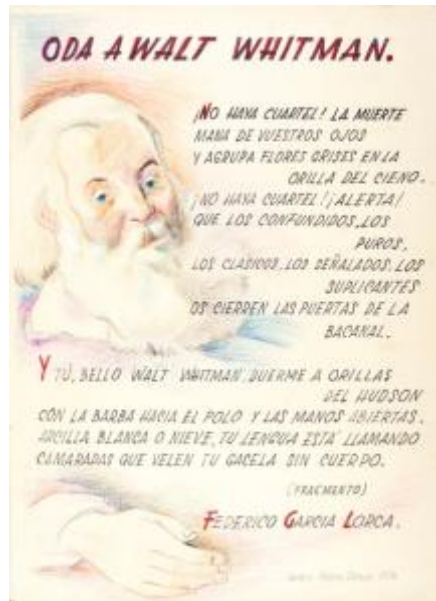 ODA A WALT WHITMAN.
¡NO HAYA CUARTEL! LA MUERTE
MANA DE VUESTROS OJOS
Y AGRUPA FLORES GRISES EN LA
ORILLA DEL CIENO.
¡NO HAYA CUARTEL! ¡ALERTA!
QUE LOS CONFUNDIDOS, LOS
PUROS,
LOS CLASICOS, LOS SEÑALADOS, LOS
SUPLICANTES
OS CIERREN LAS PUERTAS DE LA
BACANAL.
Y TÚ, BELLO WALT WHITMAN, DUERME A ORILLAS
DEL HUDSON
CON LA BARBA HACIA EL POLO Y LAS MANOS ABIERTAS.
ARCILLA BLANCA O NIEVE, TU LENGUA ESTÁ LLAMANDO
CAMARADAS QUE VELEN TU GACELA SIN CUERPO.
(FRAGMENTO)
FEDERICO GARCIA LORCA.